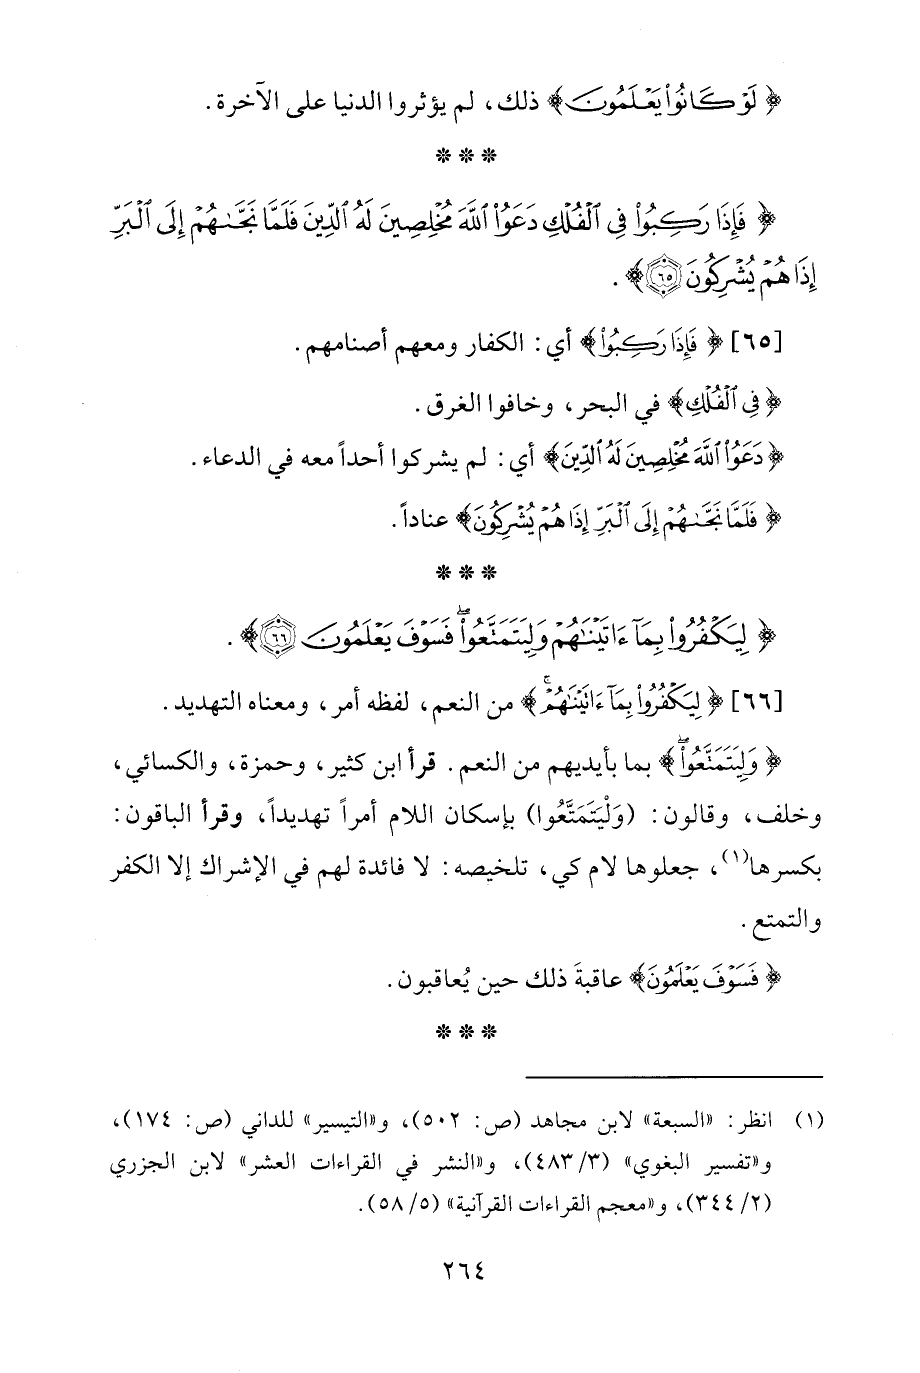 ﴿لَوْ كَانُوا۟ يَعْلَمُونَ﴾ ذلك، لم يؤثروا الدنيا على الآخرة.
* * *
﴿فَإِذَا رَكِبُوا۟ فِي ٱلْفُلْكِ دَعَوُا۟ ٱللَّهَ مُخْلِصِينَ لَهُ ٱلدِّينَ فَلَمَّا نَجَّىٰهُمْ إِلَى ٱلْبَرِّ
إِذَا هُمْ يُشْرِكُونَ ٦٥﴾.
[٦٥] ﴿فَإِذَا رَكِبُوا۟﴾ أي: الكفار ومعهم أصنامهم.
﴿فِي ٱلْفُلْكِ﴾ في البحر، وخافوا الغرق.
﴿دَعَوُا۟ ٱللَّهَ مُخْلِصِينَ لَهُ ٱلدِّينَ﴾ أي: لم يشركوا أحداً معه في الدعاء.
﴿فَلَمَّا نَجَّىٰهُمْ إِلَى ٱلْبَرِّ إِذَا هُمْ يُشْرِكُونَ﴾ عناداً.
* * *
﴿لِيَكْفُرُوا۟ بِمَآ ءَاتَيْنَٰهُمْ وَلِيَتَمَتَّعُوا۟ۖ فَسَوْفَ يَعْلَمُونَ ٦٦﴾.
[٦٦] ﴿لِيَكْفُرُوا۟ بِمَآ ءَاتَيْنَٰهُمْ﴾ من النعم، لفظه أمر، ومعناه التهديد.
﴿وَلِيَتَمَتَّعُوا۟ۖ﴾ بما بأيديهم من النعم. قرأ ابن كثير، وحمزة، والكسائي،
وخلف، وقالون: (وَلْيَتَمَتَّعُوا) بإسكان اللام أمراً تهديداً، وقرأ الباقون:
بكسرها(١)، جعلوها لام كي، تلخيصه: لا فائدة لهم في الإشراك إلا الكفر
والتمتع.
﴿فَسَوْفَ يَعْلَمُونَ﴾ عاقبةَ ذلك حين يُعاقبون.
* * *
(١) انظر: «السبعة» لابن مجاهد (ص: ٥٠٢)، و«التيسير» للداني (ص: ١٧٤)،
و«تفسير البغوي» (٣/ ٤٨٣)، و«النشر في القراءات العشر» لابن الجزري
(٢/ ٣٤٤)، و«معجم القراءات القرآنية» (٥/ ٥٨).
٢٦٤